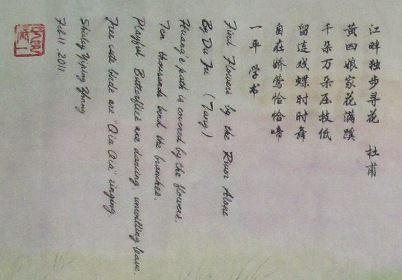 江畔独步寻花 杜甫
黄四娘家花满蹊
千朵万朵压枝低
留连戏蝶时时舞
自在娇莺恰恰啼
一平 学书
Find Flowers by the River Alone
By Du Fu (Tang)
Huang's path is covered by the flowers,
Ten thousand bend the branches.
Playful Butterflies are dancing, unwilling leave.
Free cute birds are "Qia Qia" singing
Shirley Yiping Zhang
Feb 11. 2011